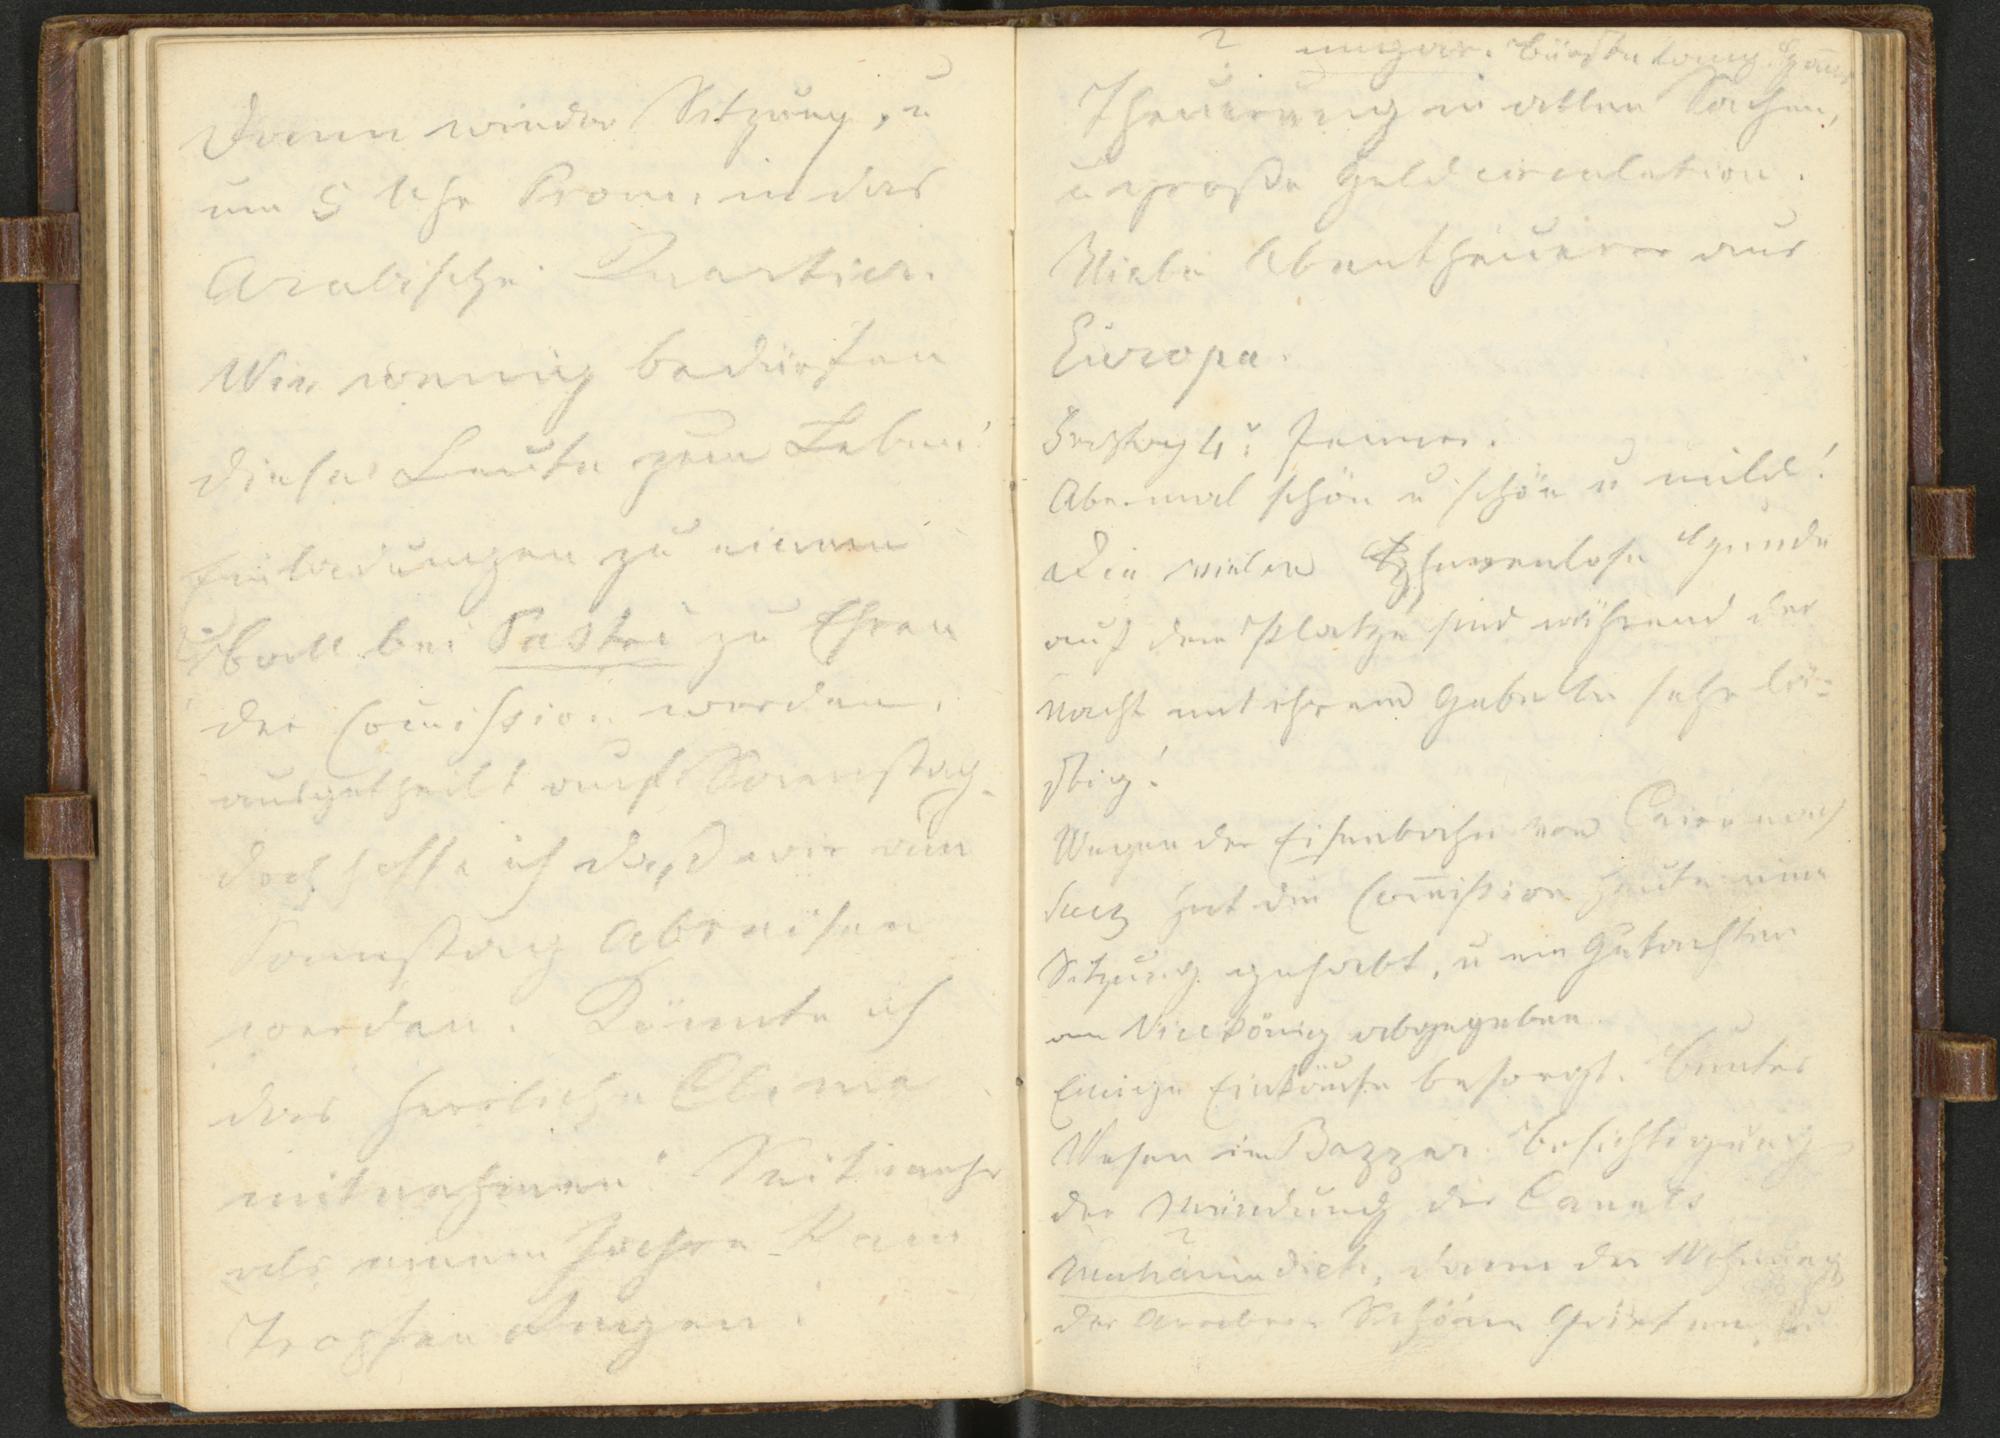 Dann wieder Sitzung, u
um 5 Uhr Prom. in das
Arabische Quartier.
Wie wenig bedürfen
diese Leute zum Leben!
Einladungen zu einem
Ball bei Pastré zu Ehren
der Com̅ission werden
ausgetheilt auf Samstag.
doch hoffe ich daß wir am
Samstag Abreisen
werden. Könnte ich
das herrliche Clima
mitnehmen! Seit mehr
als einem Jahre kein
Tropfen Regen!
? ungar.
Theuerung in allen Sachen,
u große Geldcirculation.
Viele Abentheuerer aus
Europa.
Freitag 4. Jänner.
Abermal schön u schön u mild!
Die vielen herrenlose Hunde
auf dem Platze sind während der
Nacht mit ihrem Gebelle sehr lä-
stig!
Wegen der Eisenbahn von Cairo nach
Suez hat die Com̅ission heute eine
Sitzung gehabt, u ein Gutachten
am Vicekönig abgegeben.
Einige Einkäufe besorgt. Buntes
Wesen im Bazzar. Besichtigung
der Mündung des Canals
?
dieh, dann der Wohnung
der Araber. Schöne Gärten, u